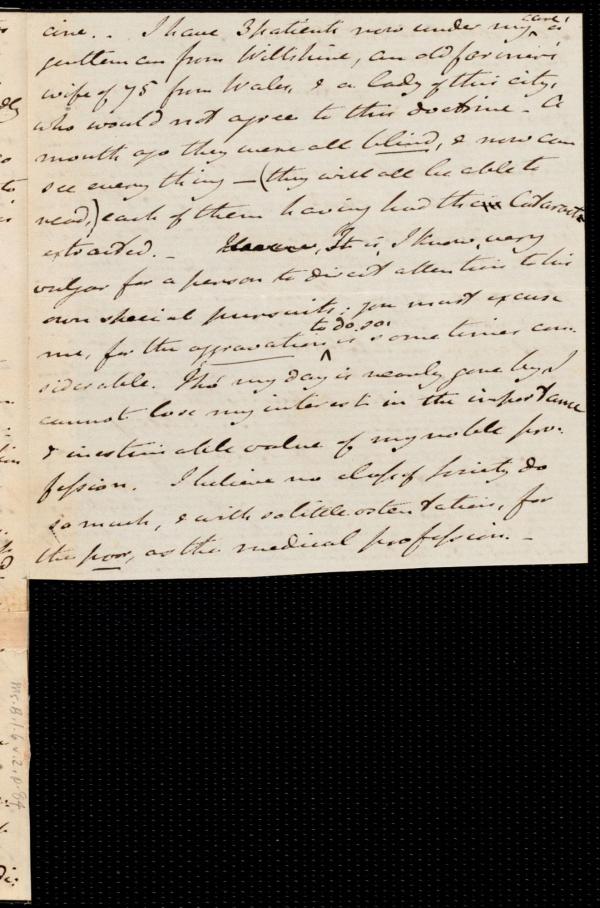 care!
cine.. I have 3 patients now under my ^ a
gentleman from Wiltshire, an old farmer's
wife of 75 from Wales, & a lady of this city,
who would not agree to this doctrine - A
month ago they were all blind, & now can
see every thing — (they will all be able to
read,) each of them having had their Cataracts
extracted. - However, It is, I know, very
vulgar for a person to direct attention to his
own special pursuits; you must excuse
to do so
me, for the aggravation ^ is sometimes con-
siderable. Tho' my day is nearly gone by, I
cannot lose my interest in the importance
& inestimable value of my noble pro-
fession. I believe no class of Society do
so much, & with so little ostentation, for
the poor, as the medical profession. -
Ms. B.1.6 v.2, p.84